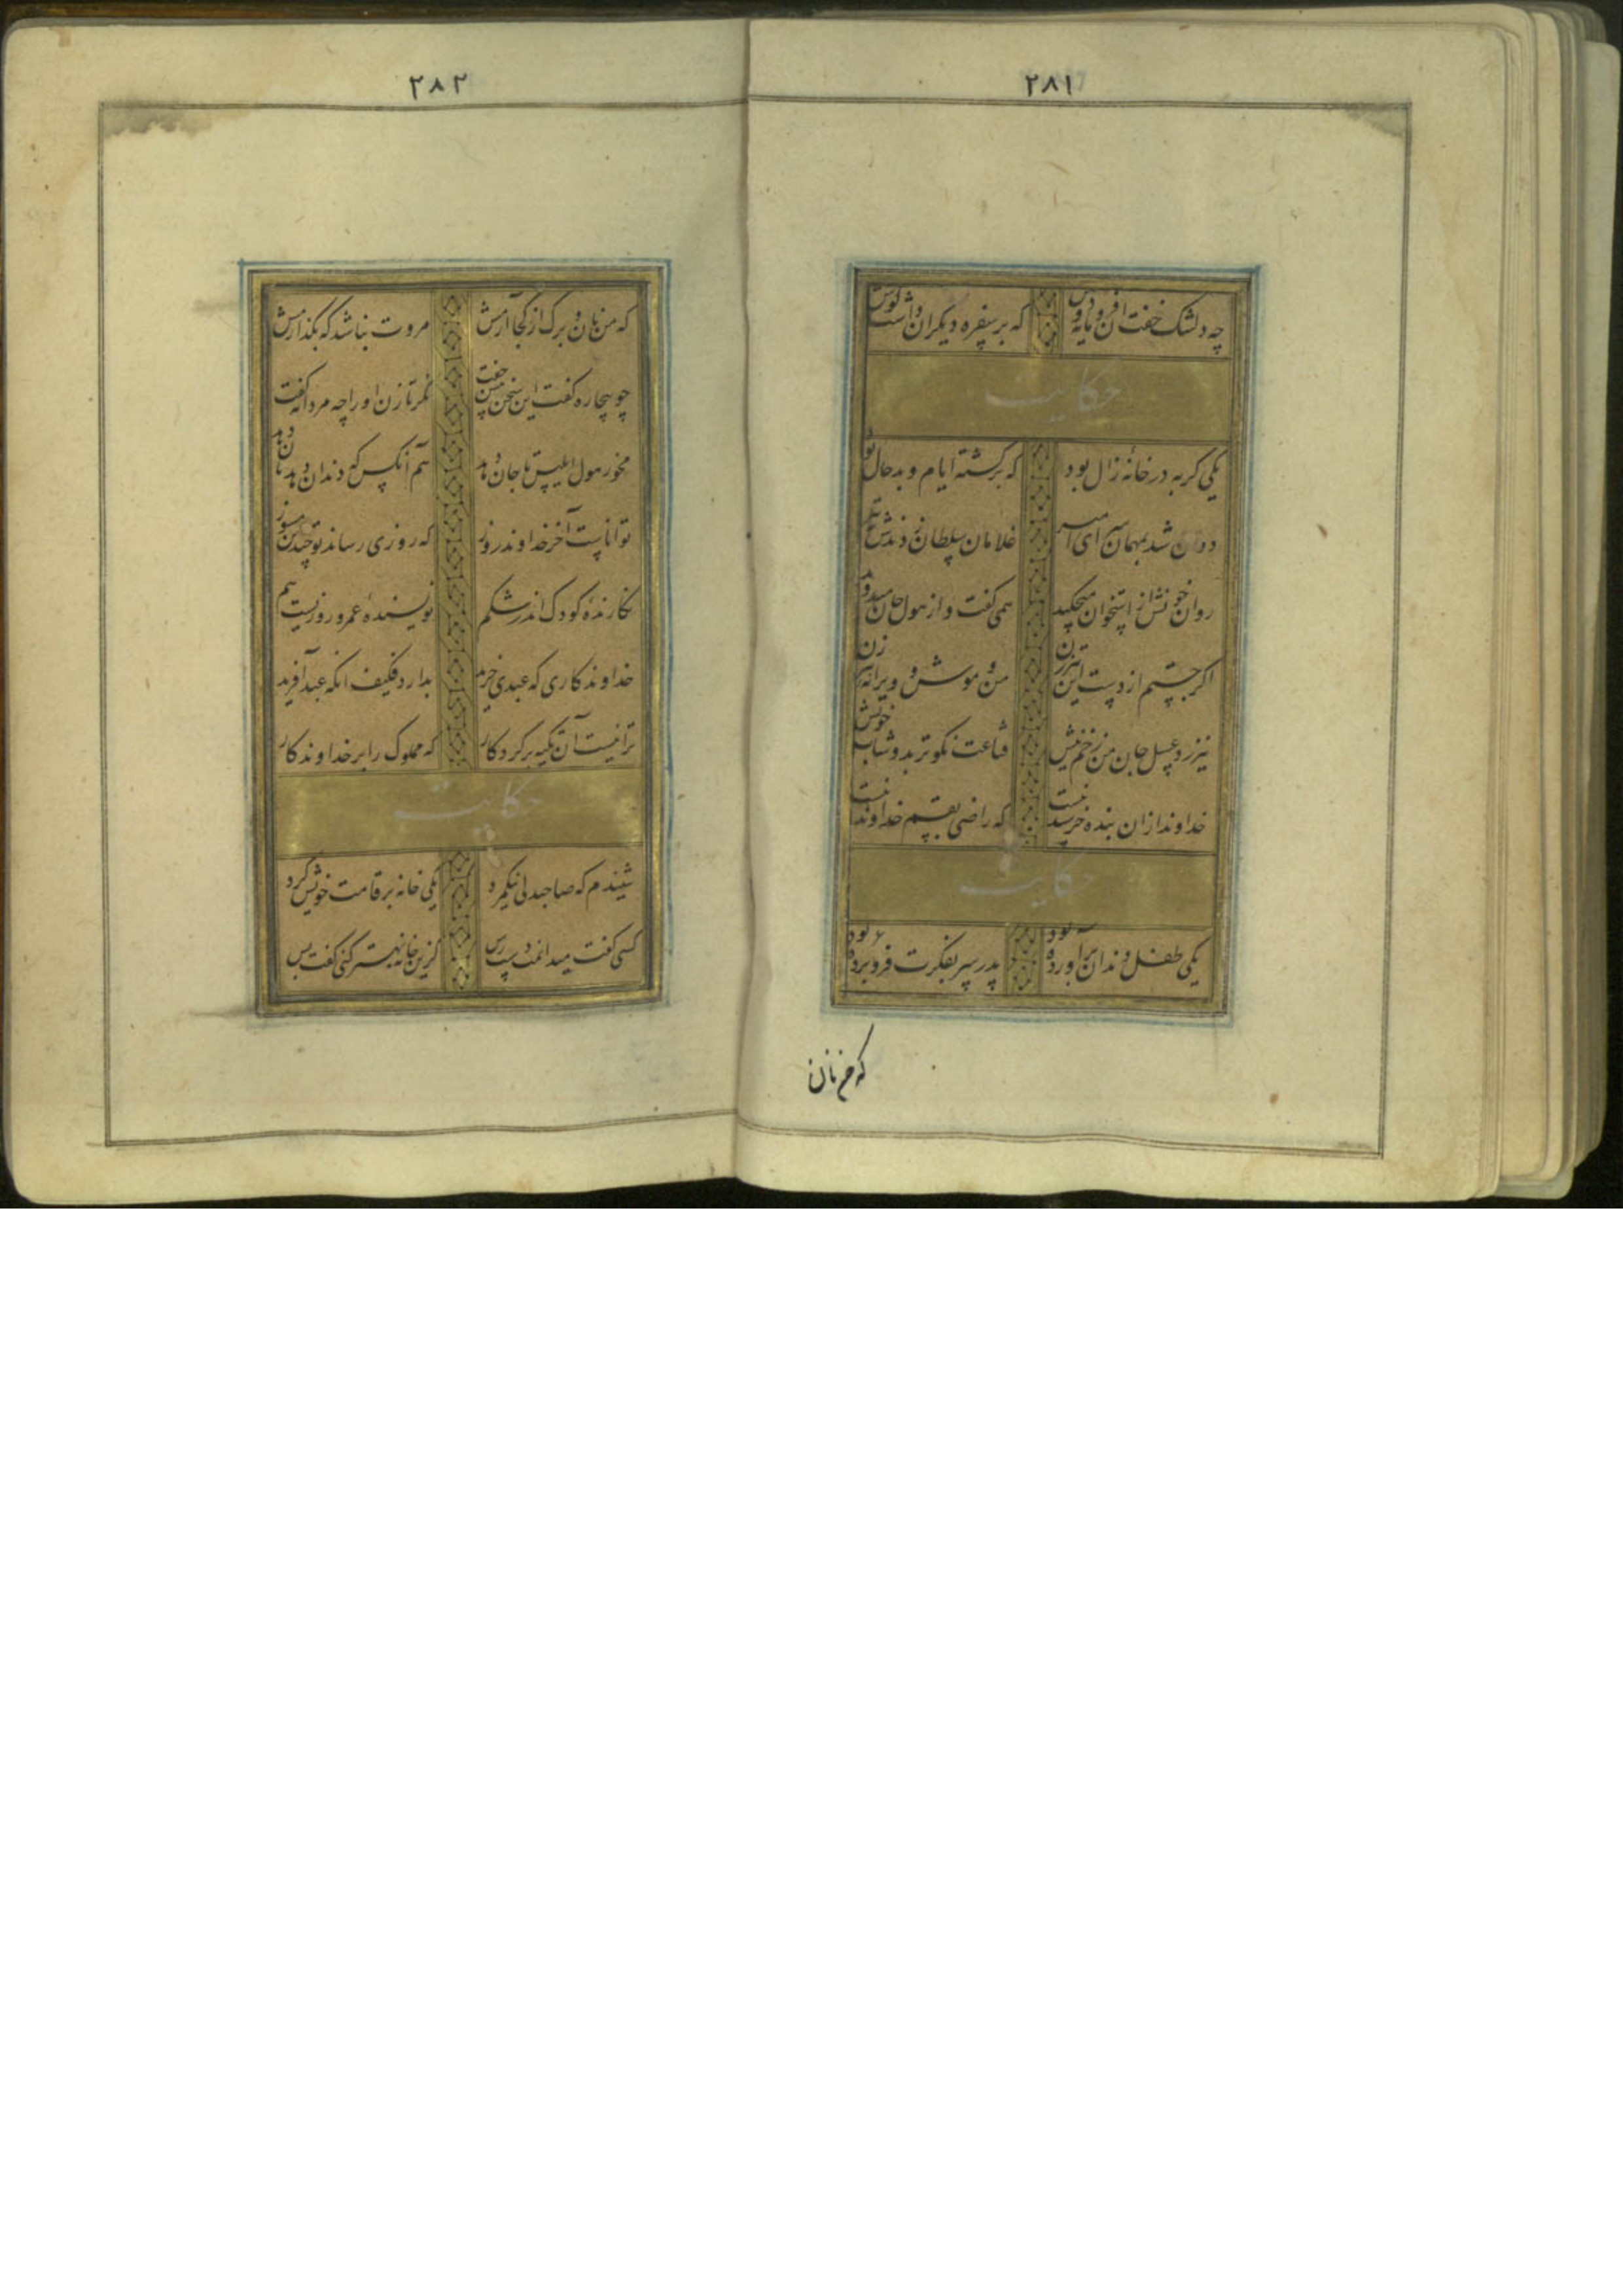 ۲۸۱
چه دلتنگ خفت آن فرومایه دوش که بر سفره دیگران داشت گوش
حکایت
یکی گربه در خانه زال بود که برگشته ایام و بدحال بود
دوان شد بمهمان سرای امیر غلامان سلطان زدندش بتیر
روان خونش از استخوان میچکید همی گفت و از هول جان میدوید
اگر جستم از دست این تیرزن من و موش و ویرانه پیرزن
نیرزد عسل جان من زخم نیش قناعت نکوتر بدوشاب خویش
خداوند از ان بنده خرسند نیست که راضی بقسم خداوند نیست
حکایت
یکی طفل دندان برآورده بود پدر سر بفکرت فروبرده بود
که من نان
۲۸۲
که من نان و برگ از کجا آرمش مروت نباشد که بگذارمش
چو بیچاره گفت این سخن پیش جفت نگر تا زن او را چه مردانه گفت
مخور هول ابلیس تا جان دهد هم آنکس که دندان دهد نان دهد
تواناست آخر خداوند روز که روزی رساند تو چندین مسوز
نگارنده کودک اندر شکم نویسنده عمر و روزیست هم
خداوندکاری که عبدی خرید بدارد فکیف انکه عبد آفرید
ترا نیست آن تکیه بر کردکار که مملوک را بر خداوندکار
حکایت
شنیدم که صاحبدلی نیکمرد یکی خانه بر قامت خویش کرد
کسی گفت میدانمت دسترس کزین خانه بهتر کنی گفت بس